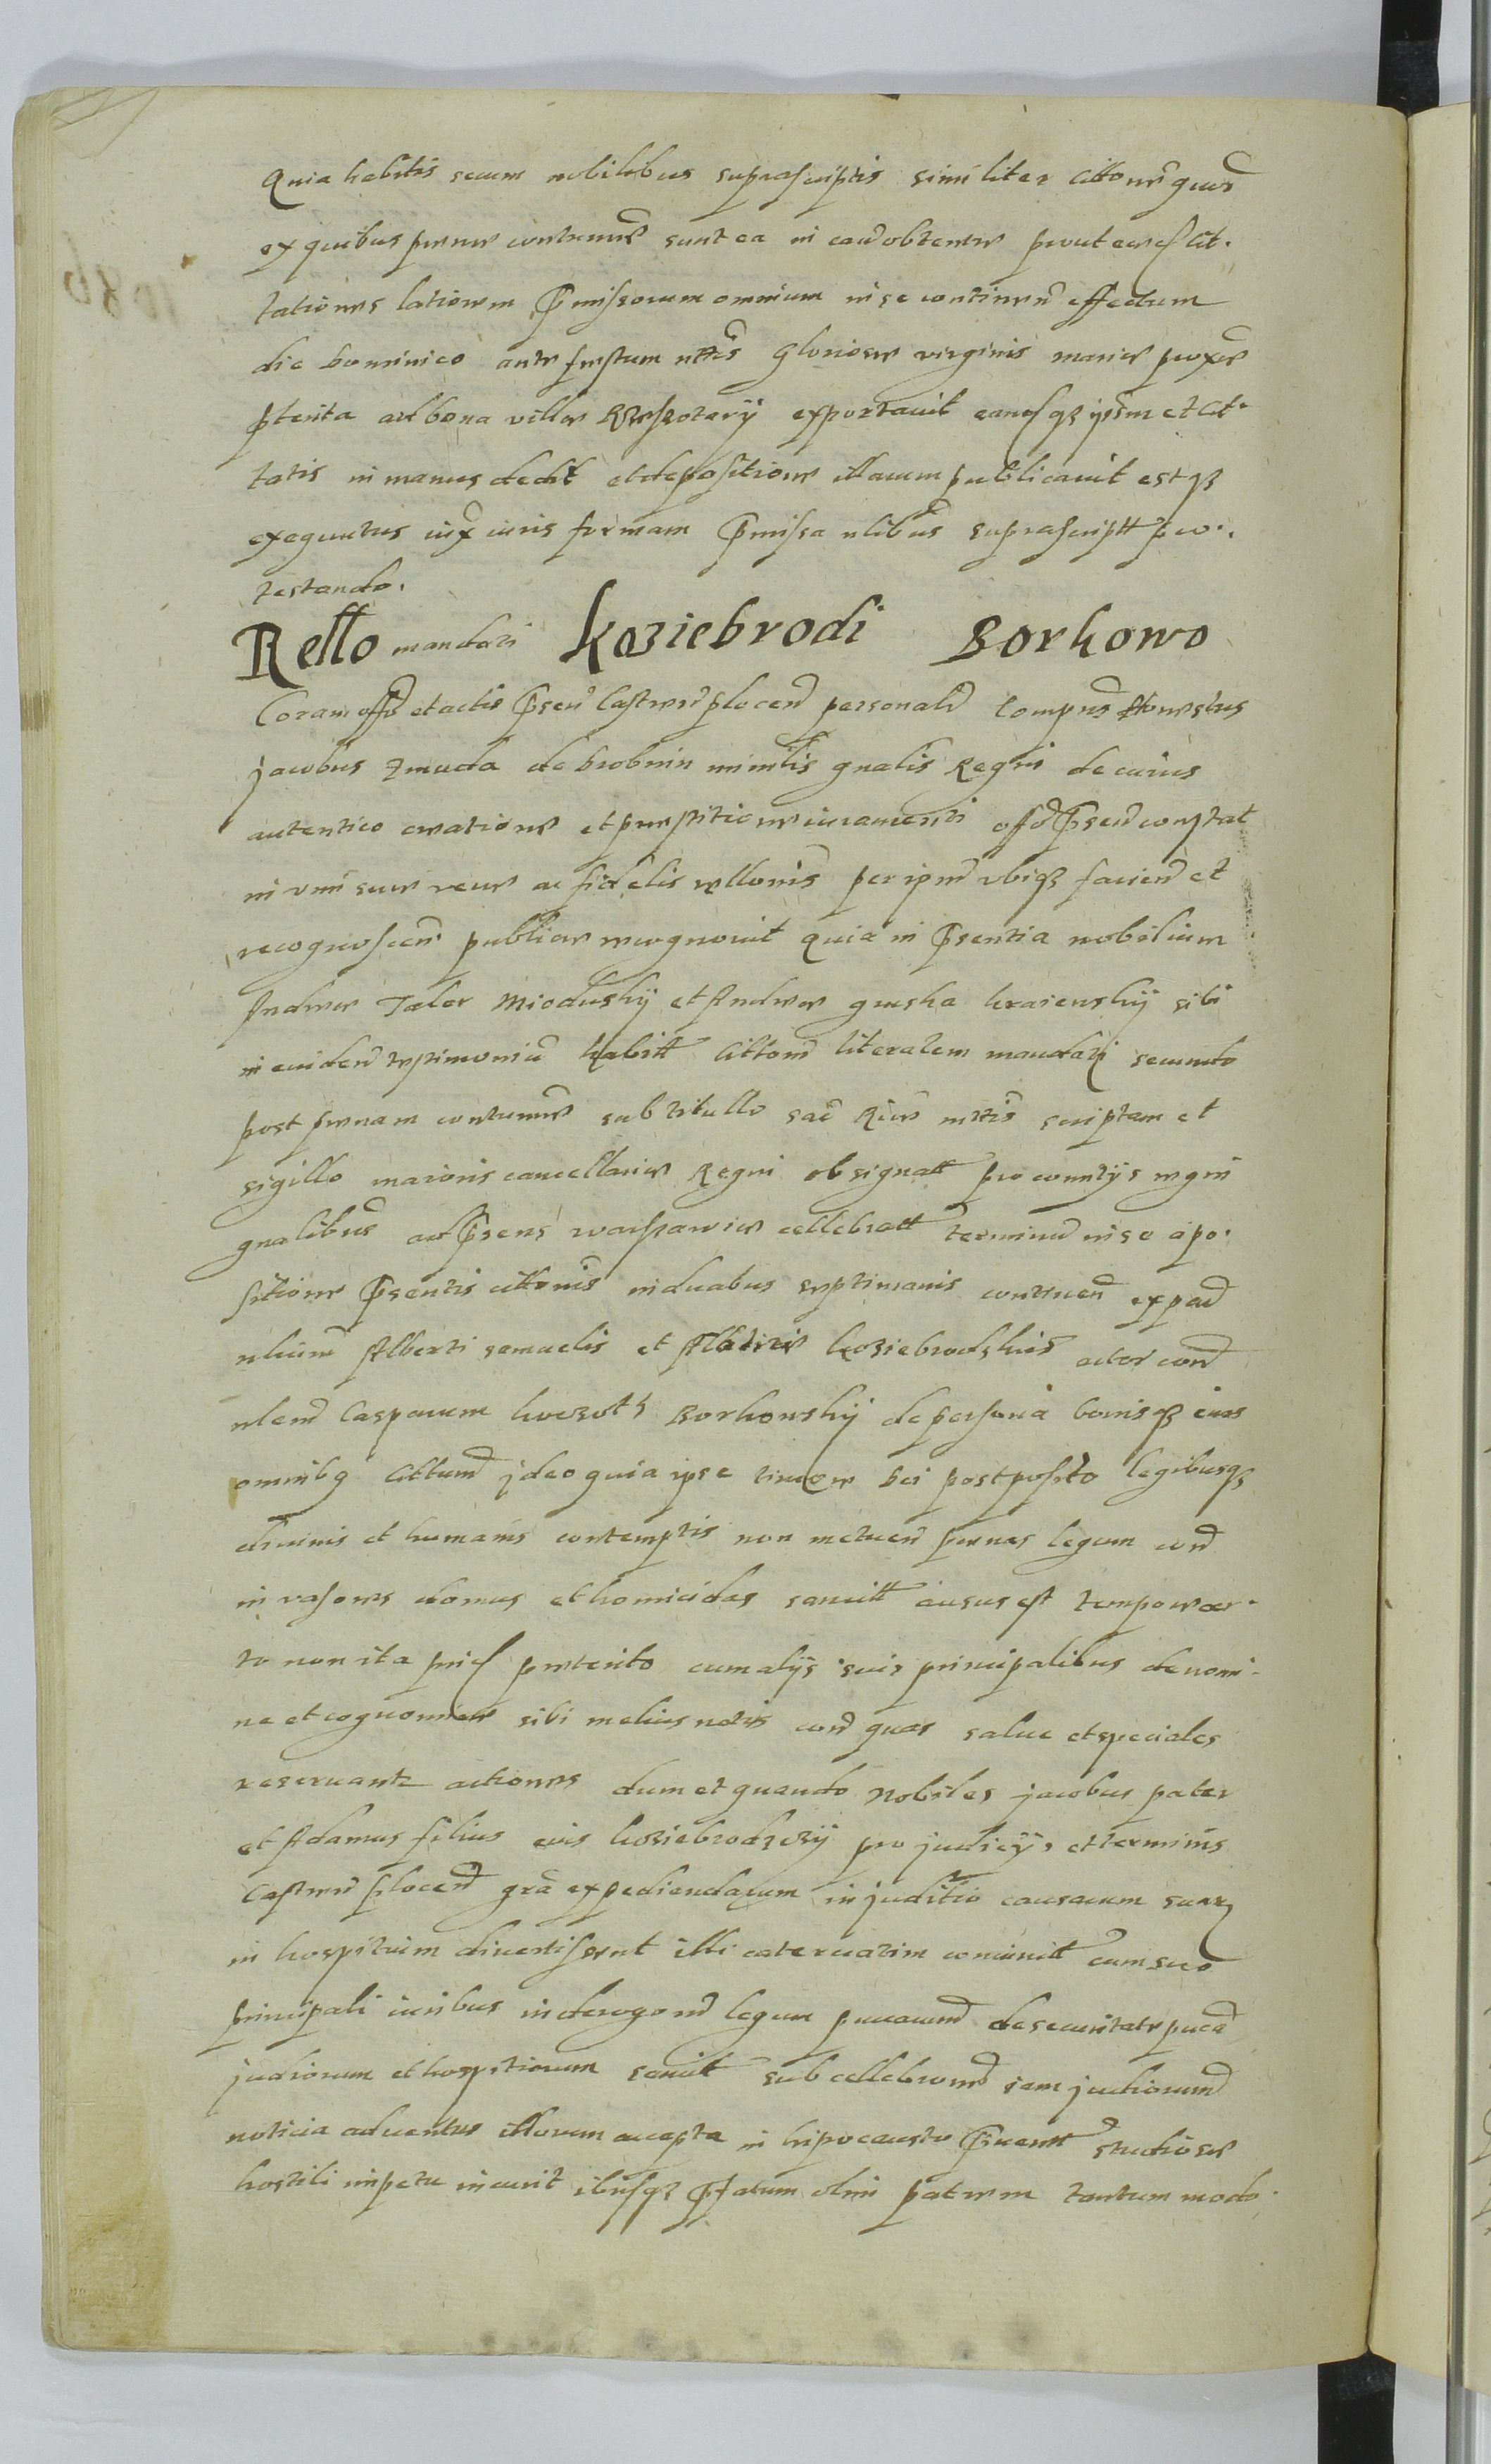 Quia habitis secum nobilibus suprascriptis similiter citto
ex quibus poenae contumae sunt ea in cau obtentae prout eaes cit.
tationes latiorem Pmissorum omnium in se continen effectum
die dominico ante festum nttis Gloriosae virginis mariae proxe
ptenta ad bona villae exportavit easqz ipsim et cit.
tatis in manus dedit et depositione illarum publicavit estqz
exequutus iux iuris formam Pmissa nlibus suprascriptt pro.
testando.
Rello mandati Koziebrodi Borkowo
Coram offo et actis Psen Castren plocen personalr compns Honestus
jacobus zmuda de drobnin minilis gnalis Regni de cuius
autentico creatione et prestitione iuramenti offo Psen constat
in vim suae verae ac fidelis rellonis per ipm ubiqz facien et
recognoscen. publice recognovit quia in Psentia nobilium
Andreae Taler Mioduskij et Andreae gruska kraienskij sibi
in eviden testimoniu habitt cittom literalem mandati secundo
post poenam contumae sub titullo sac Riae mttis scriptam et
sigillo maioris cancellariae Regni obsignatt pro comitijs regni
gnalibus ad Psens warszawiae cellebratt terminu in se a po.
sitione Psentis cittonis in duabus septimanis continen ex pa
nlium Alberti samuelis et Koziebrodskis actor con
nlem Casparum Borkowskij de persona bonisqz eius
omnibq cittum jdeo quia ipse timore Dei postposito legibusqz
divinis et humanis contemptis non metuen poenas legum con
invasores domus et homicidas sancitt ausus est tempore cer.
to non ita prid preterito cum alijs suis principalibus de nomi-
ne et cognomine sibi melius notis con quos salvae et speciales
reservantr actiones dum et quando Nobiles jacobus pater
et Adamus filius eius koziebrodzczij pro judicijs et terminis
Castren plocen gra expediendarum in juditio causarum suarz
in hospitium divertissent illi catervatim coniunitt cum suo
principali iuribus in derogonem legum de securitate
judiorum et hospitiorum sancitt sub cellebronem iam judiorum
noticia adventus illorum accepta in hipocausto studiose
hostili impetu incurit ibusqz Pfatum olim patrem tantum modo